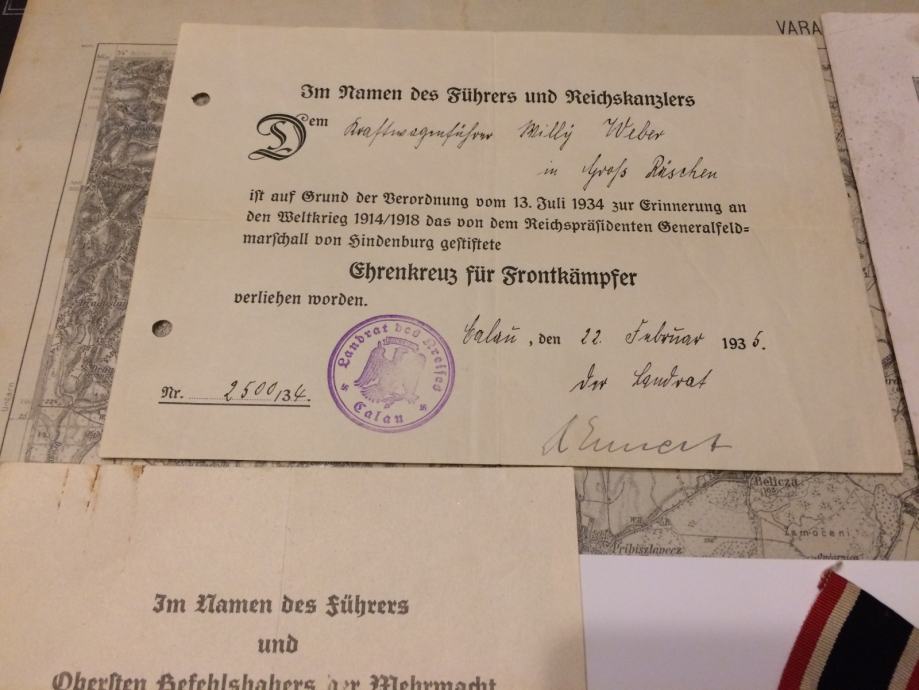 VARA
Im Namen des Führers und Reichskanzlers
Dem Kraftwagenführer Willy Weber
in Gross Räschen
ist auf Grund der Verordnung vom 13. Juli 1934 zur Erinnerung an
den Weltkrieg 1914/1918 das von dem Reichspräsidenten Generalfeld=
marschall von Hindenburg gestiftete
Ehrenkreuz für Frontkämpfer
verliehen worden.
Calau, den 22. Februar 1935.
Der Landrat
Nr. 2500/34.
Landrat des Kreises
Calau
Belicza
Pribiszlavecz
Im Namen des Führers
und
Obersten Befehlshabers der Wehrmacht